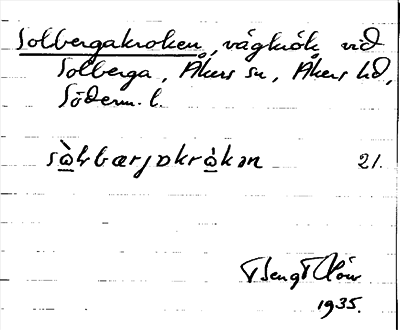 Solbergakroken, vägkrök vid
Solberga, Åkers sn, Åkers hd,
Söderm. l.
sὰⱡbærjakrὰkən 21.
Bengt
1935.